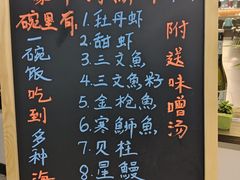 碗里有
一碗饭吃到多种海
1.牡丹虾
2.甜虾
3.三文魚
4.三文魚籽
5.金枪魚
6.寒鰤魚
7.贝柱
8.星鳗
附送味噌汤